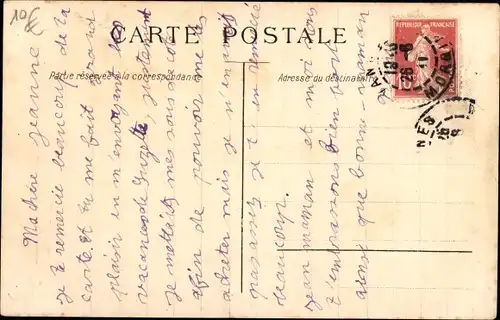 10€
CARTE POSTALE
Partie réservée à la correspondance
Adresse du destinataire
RÉPUBLIQUE FRANÇAISE
MORBIHAN
Ma chère Jeanne
je te remercie beaucoup de la
carte et tu me fait grand
plaisir en m'envoyant les
vacances de Suzette, justement
je mettais mes sous de côté
afin de pouvoir me les
acheter mais je n'en avait
pas assez je t'en remercie
beaucoup.
Jean maman et moi nous
t'embrassons bien fort
ainsi que bonne-maman